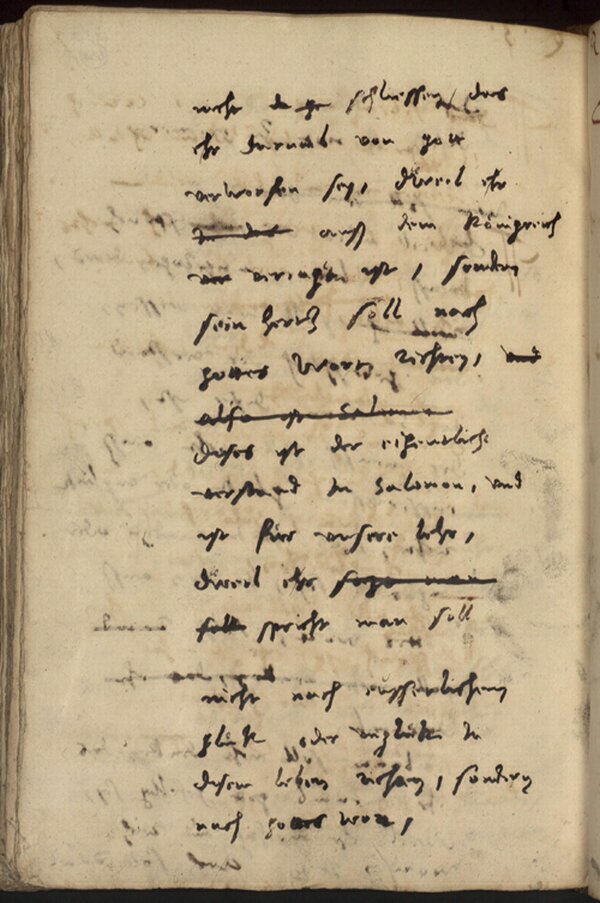 nicht schliessen das
ehr darumb von gott
verworfen sey, dweil ehr
auß dem Königreich
veriagtt ist, sondern
sein hertz soll nach
gottes Wortt richten, und
also ist Salomon
dises ist der eigentliche
verstand in Salomon, und
ist fur unsere lehr,
dweil ehr sagt man
soll spricht man soll
nicht nach eusserlichem
gluck oder ungluck in
disem leben richten, sondern
nach gottes Wort,